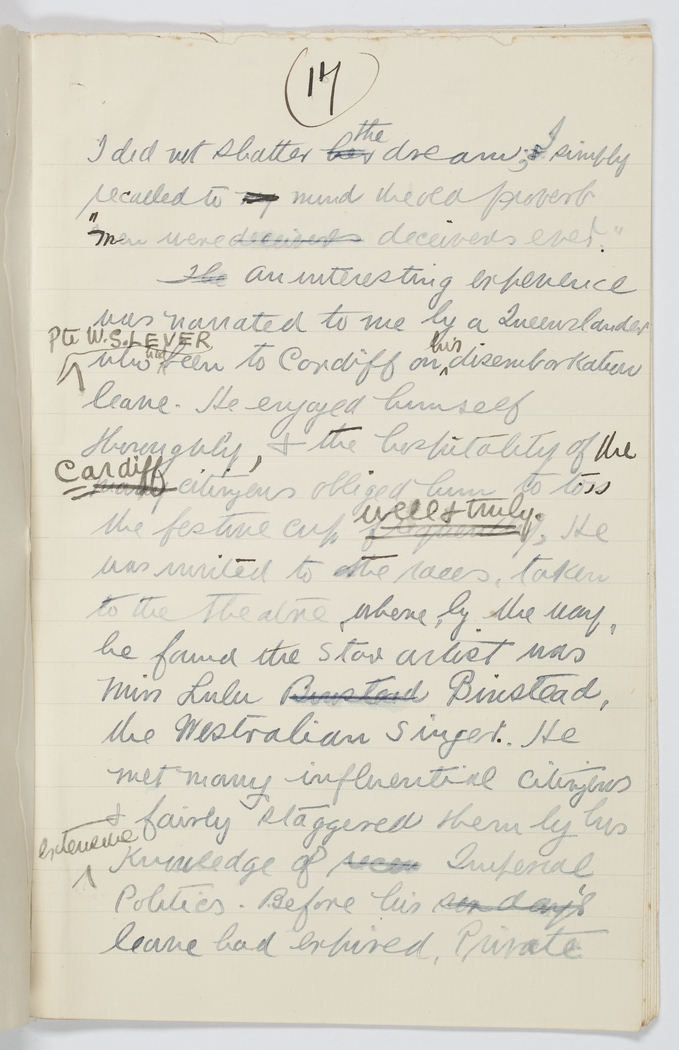 17
I did not shatter her the dream; I simply
recalled to my mind the old proverb
"men were deceivers deceivers ever."
The An interesting experience
was narrated to me by a Queenslander
Pte W.S. LEVER
who had been to Cardiff on his disembarkation
leave. He enjoyed himself
thoroughly, & the hospitality of the
Cardiff
many citizens obliged him to toss
well & truly.
the festive cup frequently, He
was invited to the races, taken
to the theatre, where, by the way,
he found the star artist was
Miss Lulu Binstead Binstead,
the Westralian Singer. He
met many influential citizens
& fairly staggered them by his
extensive
Knowledge of Imperial
Politics. Before his six day's
leave had expired, Private